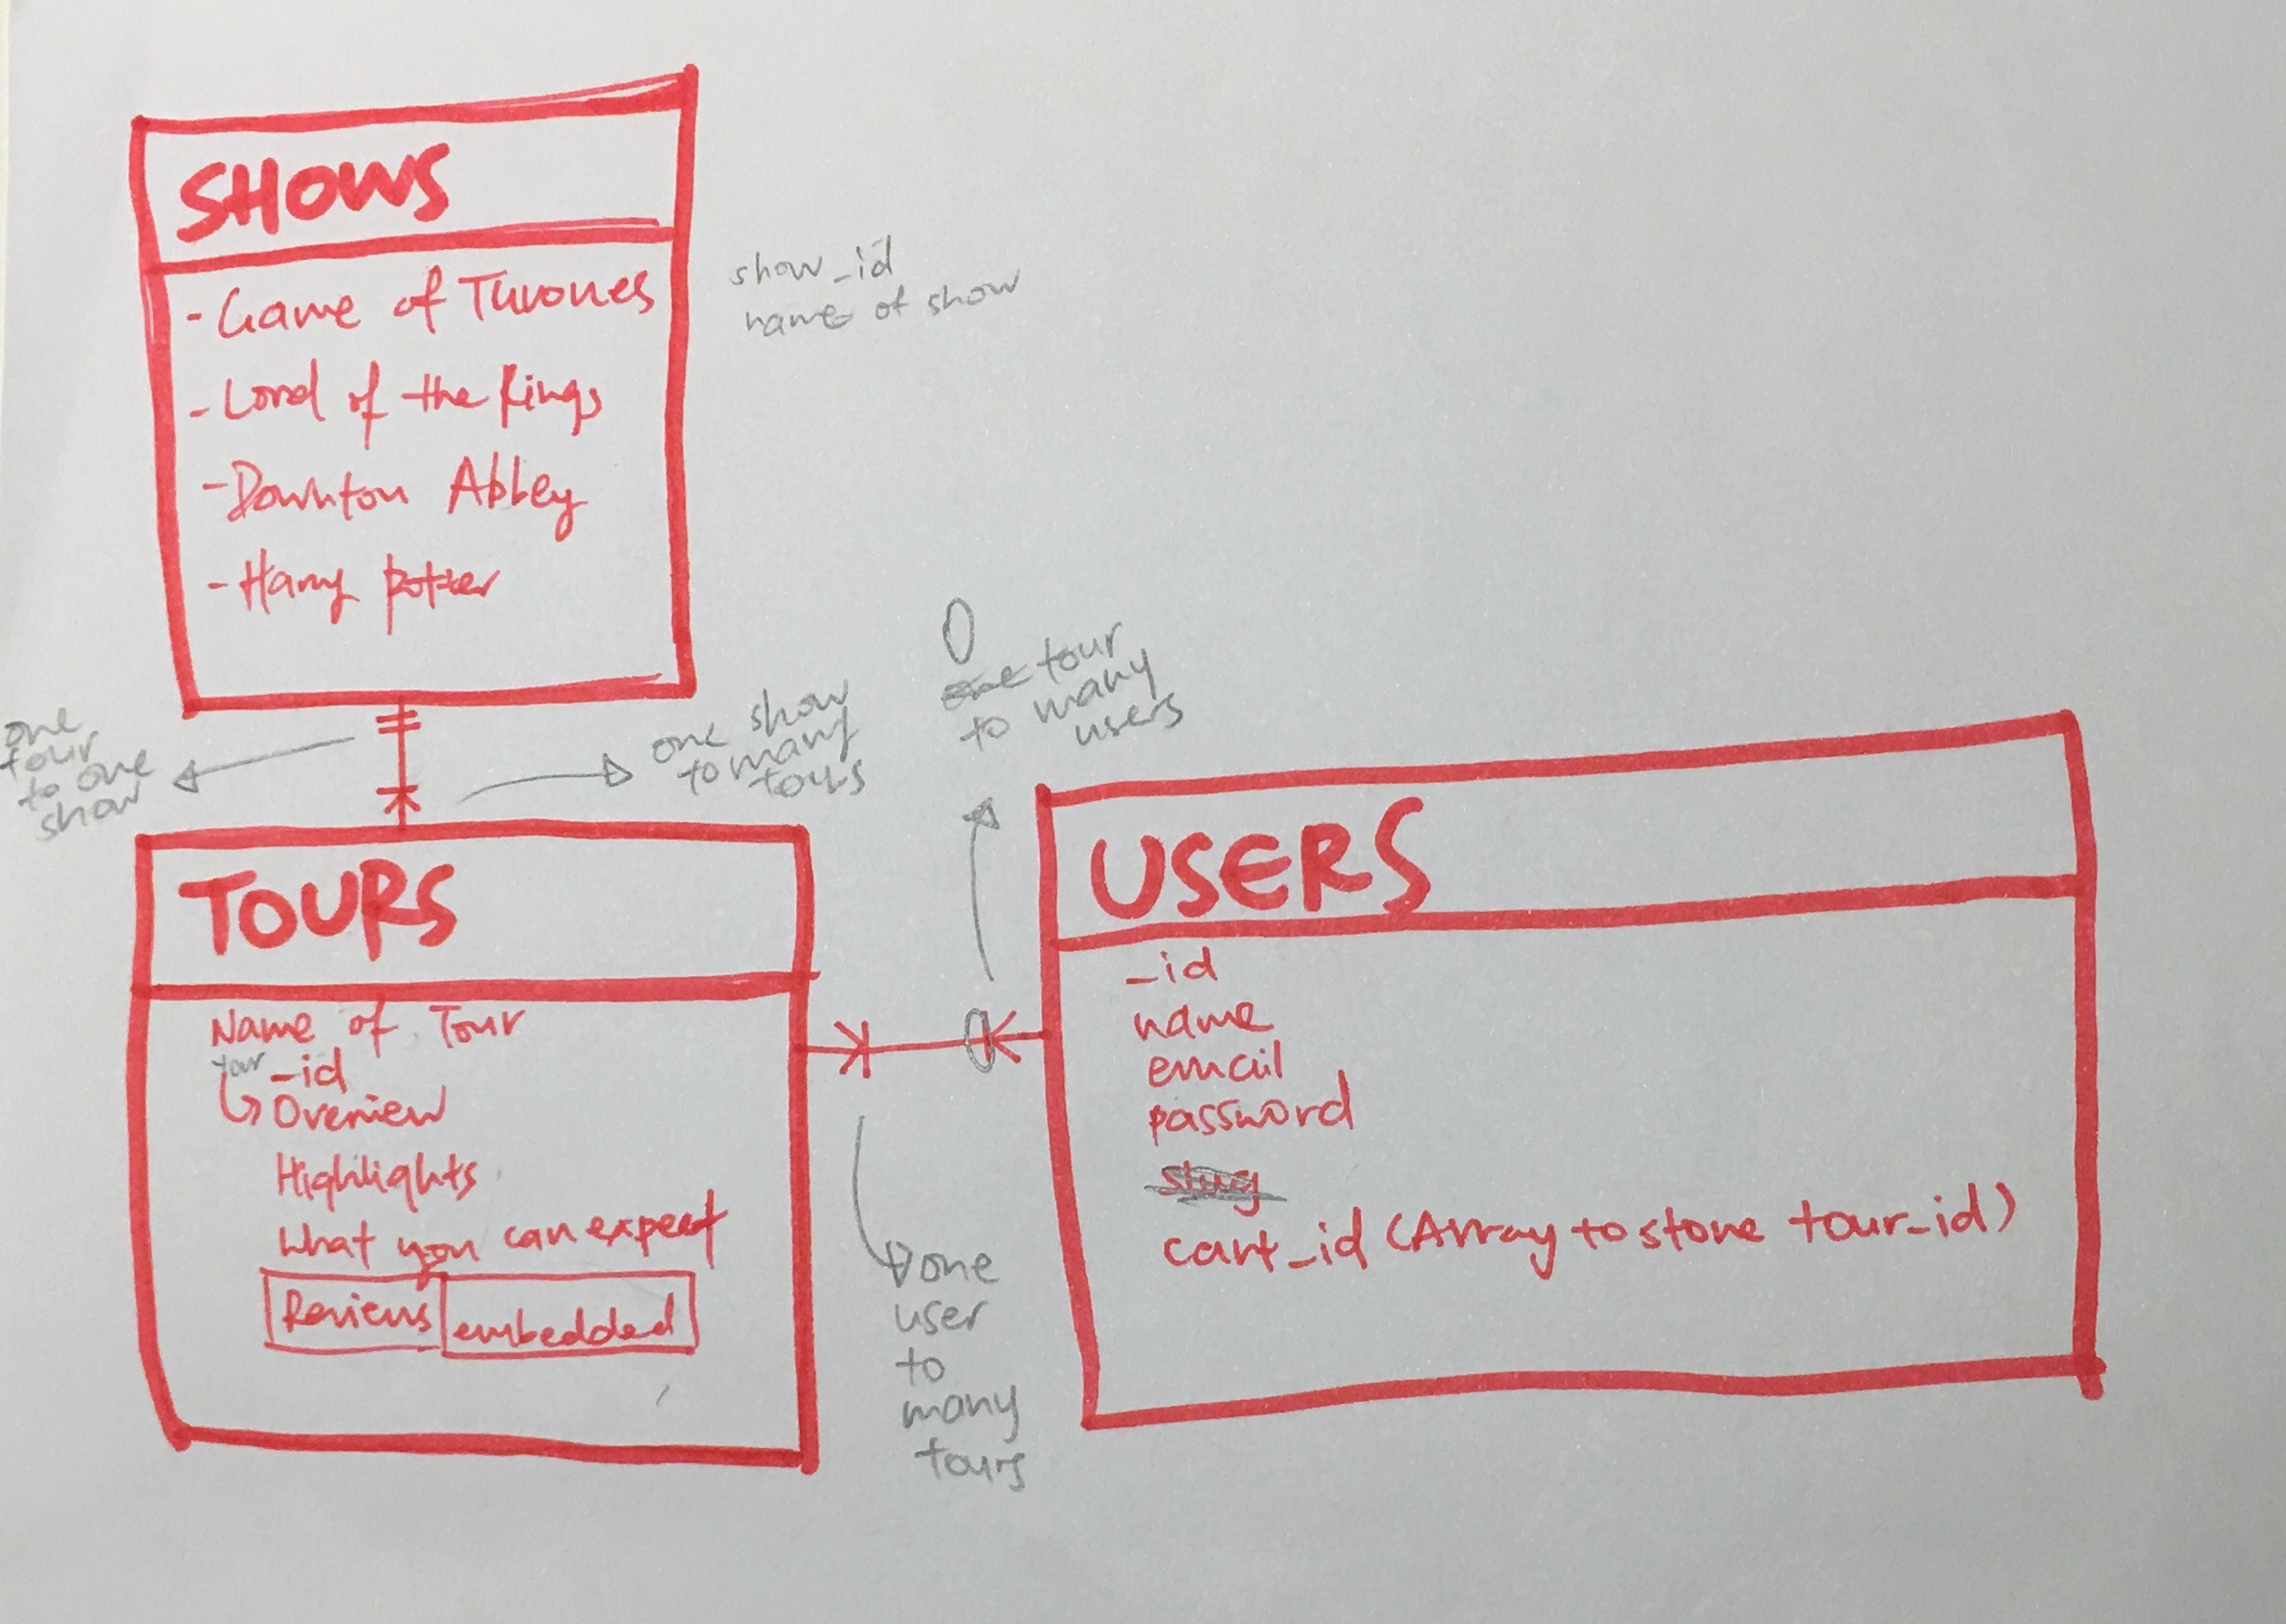 SHOWS
- Game of Thrones
- Lord of the Rings
- Downton Abbey
- Harry Potter
show_id
name of show
one
tour
to one
show
one show
to many
tours
0
one tour
to many
users
TOURS
Name of Tour
_id
Overview
Highlights
What you can expect
Reviews embedded
one
user
to
many
tours
USERS
_id
name
email
password
slug
cart_id (Array to store tour_id)